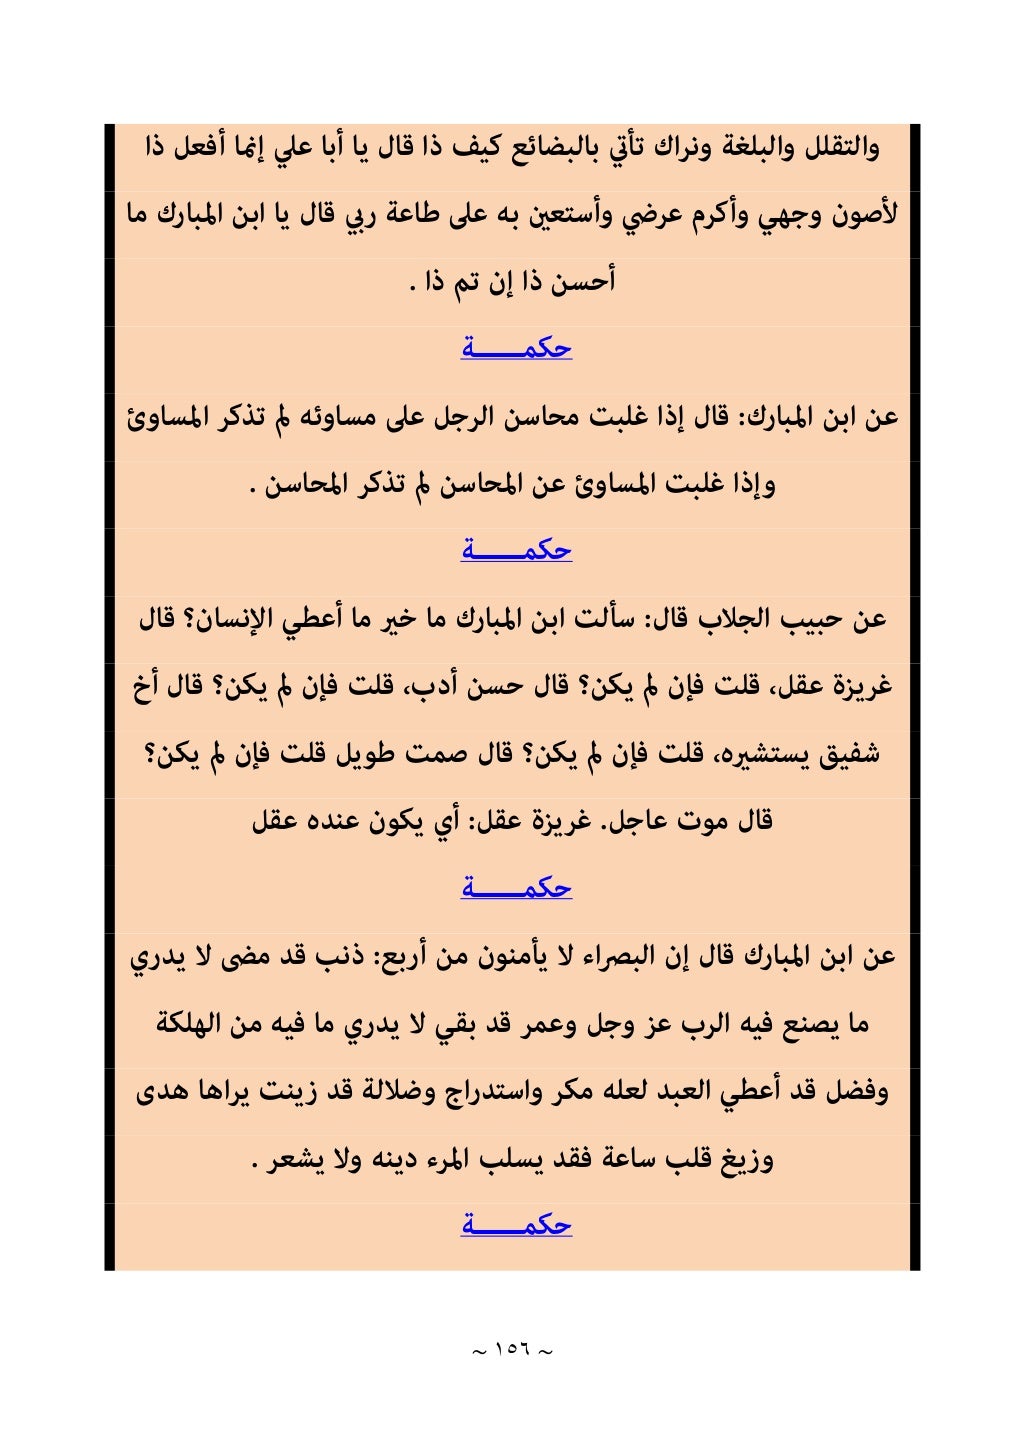 والتقلل والبلغة ونراك تأتي بالبضائع كيف ذا قال يا أبا علي إنما أفعل ذا
لأصون وجهي وأكرم عرضي وأستعين به على طاعة ربي قال يا ابن المبارك ما
أحسن ذا إن تم ذا .
حكمــــــة
عن ابن المبارك: قال إذا غلبت محاسن الرجل على مساوئه لم تذكر المساوئ
وإذا غلبت المساوئ عن المحاسن لم تذكر المحاسن .
حكمــــــة
عن حبيب الجلاب قال: سألت ابن المبارك ما خير ما أعطي الإنسان؟ قال
غريزة عقل، قلت فإن لم يكن؟ قال حسن أدب، قلت فإن لم يكن؟ قال أخ
شفيق يستشيره، قلت فإن لم يكن؟ قال صمت طويل قلت فإن لم يكن؟
قال موت عاجل. غريزة عقل: أي يكون عنده عقل
حكمــــــة
عن ابن المبارك قال إن البصراء لا يأمنون من أربع: ذنب قد مضى لا يدري
ما يصنع فيه الرب عز وجل وعمر قد بقي لا يدري ما فيه من الهلكة
وفضل قد أعطي العبد لعله مكر واستدراج وضلالة قد زينت يراها هدى
وزيغ قلب ساعة فقد يسلب المرء دينه ولا يشعر .
حكمــــــة
~ ١٥٦ ~